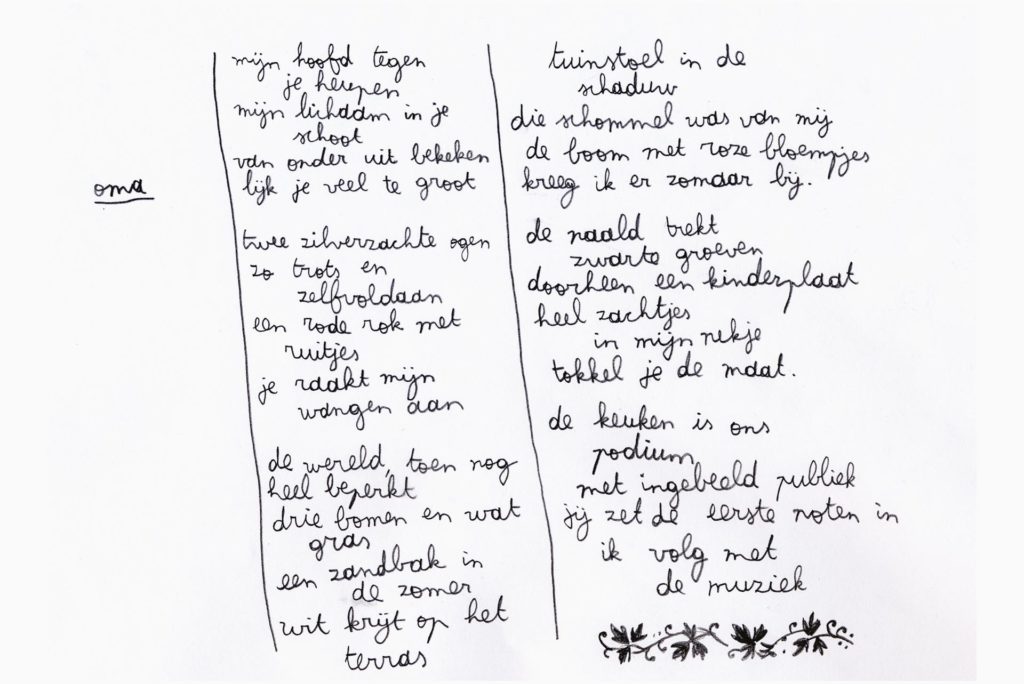 oma
mijn hoofd tegen
je heupen
mijn lichaam in je
schoot
van onder uit bekeken
lijk je veel te groot
twee zilverzachte ogen
zo trots en
zelfvoldaan
een rode rok met
ruitjes
je raakt mijn
wangen aan
de wereld, toen nog
heel beperkt
drie bomen en wat
gras
een zandbak in
de zomer
wit krijt op het
terras
tuinstoel in de
schaduw
die schommel was van mij
de boom met roze bloempjes
kreeg ik er zomaar bij.
de naald trekt
zwarte groeven
doorheen een kinderplaat
heel zachtjes
in mijn nekje
tokkel je de maat.
de keuken is ons
podium
met ingebeeld publiek
jij zet de eerste noten in
ik volg met
de muziek